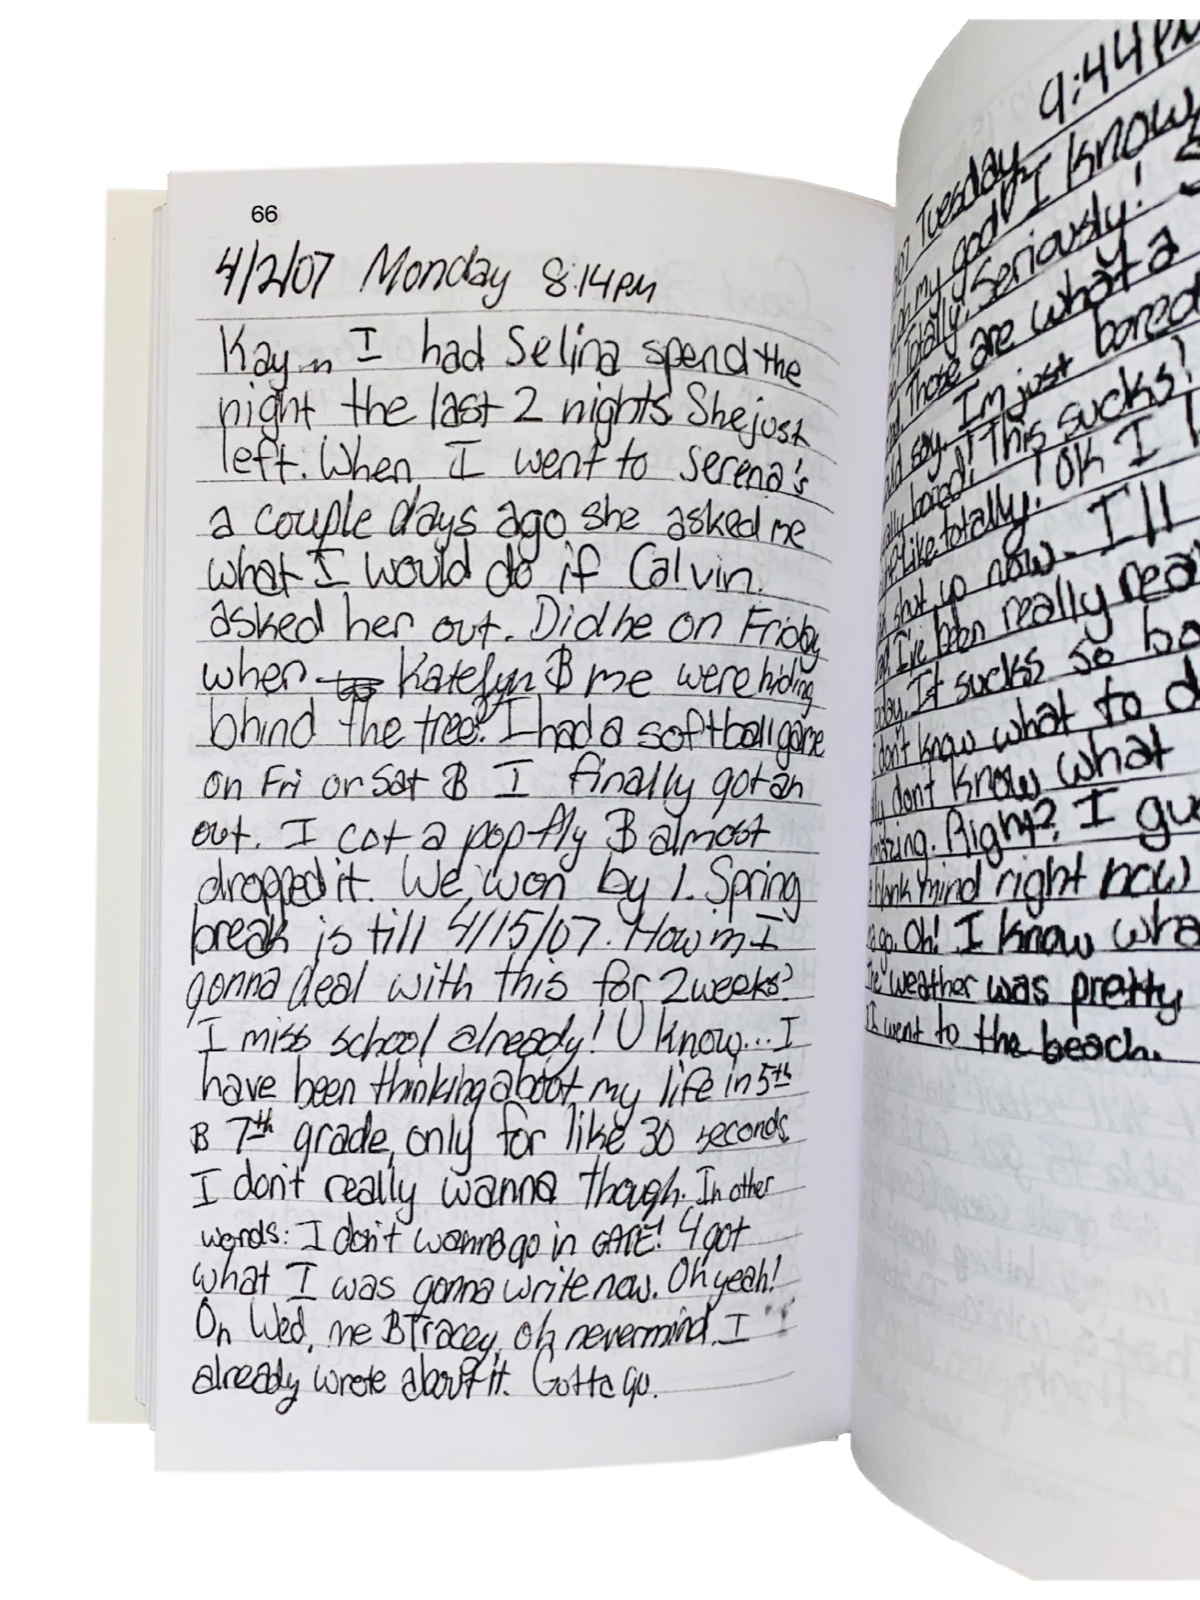 66
4/2/07 Monday 8:14PM
Kay. I had Selina spend the
night the last 2 nights. She just
left. When I went to Serena's
a couple days ago she asked me
what I would do if Calvin
asked her out. Did he on Friday
when Katelyn B me were hiding
bhind the tree? I had a softball game
on Fri or Sat B I finally got an
out. I cot a pop fly B almost
dropped it. We won by 1. Spring
break is till 4/15/07. How m I
gonna deal with this for 2 weeks?
I miss school already! U know... I
have been thinking aboot my life in 5th
B 7th grade, only for like 30 seconds
I don't really wanna though. In other
words: I don't wanna go in GATE! 4got
what I was gonna write now. Oh yeah!
On Wed, me B Tracey, oh nevermind. I
already wrote about it. Gotta go.
Tuesday 9:44PM
oh my god! I know
Totally, Seriously!
Those are what a
say. I'm just bored
bored! This sucks!
like totally! OK I
shut up now. I'll
I've been really
It sucks so
don't know what to
don't know what
Right? I
blank mind right now
go. Oh! I know
The weather was pretty
I went to the beach.